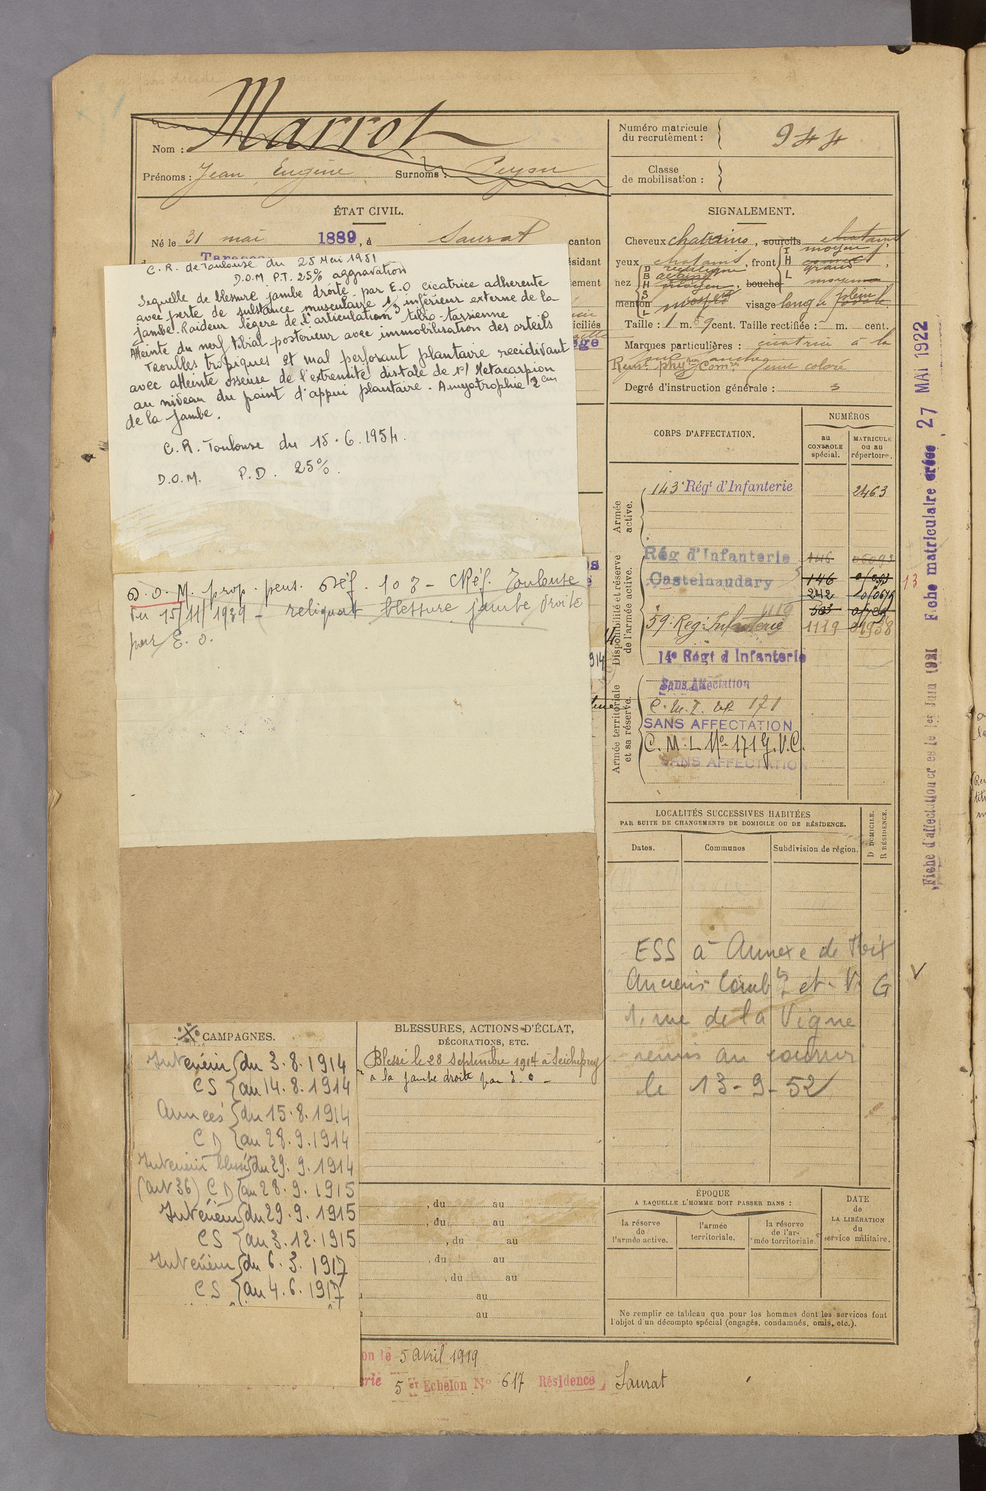 Marrot
Nom :
Prénoms : Jean Eugène Surnoms :
Numéro matricule du recrutement : 944
Classe de mobilisation :
ÉTAT CIVIL.
Né le 31 mai 1889, à Saurat canton
C. R. de Toulouse du 25 Mai 1951
D.O.M P.T. 25% aggravation
Sequelle de blessure jambe droite par E.O cicatrice adherente
avec perte de substance musculaire 1/3 inférieur externe de la
jambe. Raideur légère de l'articulation tibro-tarsienne
Atteinte du nerf tibial posterieur avec immobilisation des orteils
Troubles trophiques et mal perforant plantaire recidivant
avec atteinte osseuse de l'extremité distale de 1er Metacarpien
au niveau du point d'appui plantaire. Amyotrophie 2 cm
de la jambe.
C.R. Toulouse du 15.6.1954.
D.O.M. P.D. 25%.
D. O. M. prop. pens. Réf. 103 - CRéf. Toulouse
du 15/11/1934 - reliquat blessure jambe droite
par E. O.
SIGNALEMENT.
Cheveux chatains, sourcils chatains
yeux chatains, front moyen
nez bouche moyenne
menton visage long
Taille : 1 m. cent. Taille rectifiée : m. cent.
Marques particulières : cicatrice à la
Degré d'instruction générale : 3
CORPS D'AFFECTATION.
NUMÉROS
au CONTROLE spécial.
MATRICULE OU AU répertoire.
Armée active.
143e Régt d'Infanterie 2463
Disponibilité et réserve de l'armée active.
Rég d'Infanterie 146
Castelnaudary 146
242
59e Reg. Infanterie 1119
14e Régt d Infanterie
Armée territoriale et sa réserve.
Sans Affectation
SANS AFFECTATION
C. M. L No 171 G.V.C.
SANS AFFECTATION
LOCALITÉS SUCCESSIVES HABITÉES
PAR SUITE DE CHANGEMENTS DE DOMICILE OU DE RÉSIDENCE.
Dates. Communes Subdivision de région. D DOMICILE. R RÉSIDENCE.
ESS à Annexe de Foix
Anciens Combts et V G
1, rue de la Vigne
remis au courrier
le 13-9-52
CAMPAGNES.
Intérieur du 3.8.1914
CS au 14.8.1914
Armées du 15.8.1914
CD au 28.9.1914
Intérieur blessé du 29.9.1914
(art 36) CD au 28.9.1915
Intérieur du 29.9.1915
CS au 3.12.1915
Intérieur du 6.3.1917
CS au 4.6.1917
BLESSURES, ACTIONS D'ÉCLAT,
DÉCORATIONS, ETC.
Blessé le 28 Septembre 1914 à Seicheprey
à la jambe droite par E. O -
, du au
, du au
, du au
, du au
, du au
au
au
ÉPOQUE
A LAQUELLE L'HOMME DOIT PASSER DANS :
la réserve de l'armée active.
l'armée territoriale.
la réserve de l'armée territoriale.
DATE de LA LIBÉRATION du service militaire.
Ne remplir ce tableau que pour les hommes dont les services font
l'objet d'un décompte spécial (engagés, condamnés, omis, etc.).
on le 5 avril 1919
5 et Echelon No 617 Résidence, Saurat
Fiche d'affectation créée le 1er Juin 1921 Fiche matriculaire créée, 27 MAI 1922